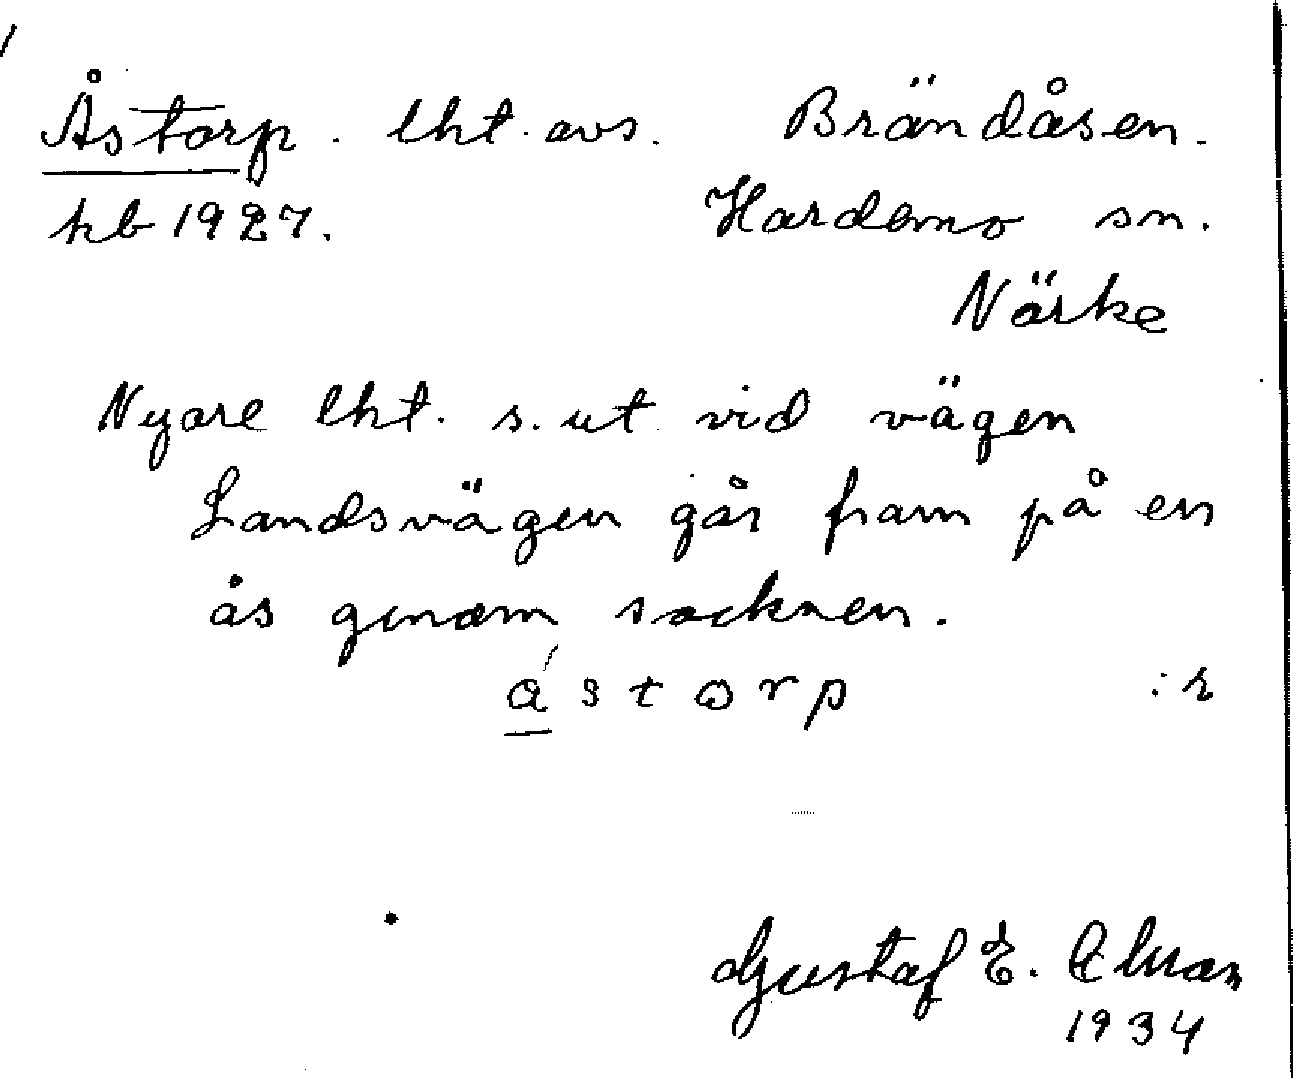 Åstorp. lht. avs. Brändåsen.
kb 1927. Hardemo sn.
Närke
Nyare lht. s. ut vid vägen
Landsvägen går fram på en
ås genom socknen.
ástorp :r
Gustaf E.
1934